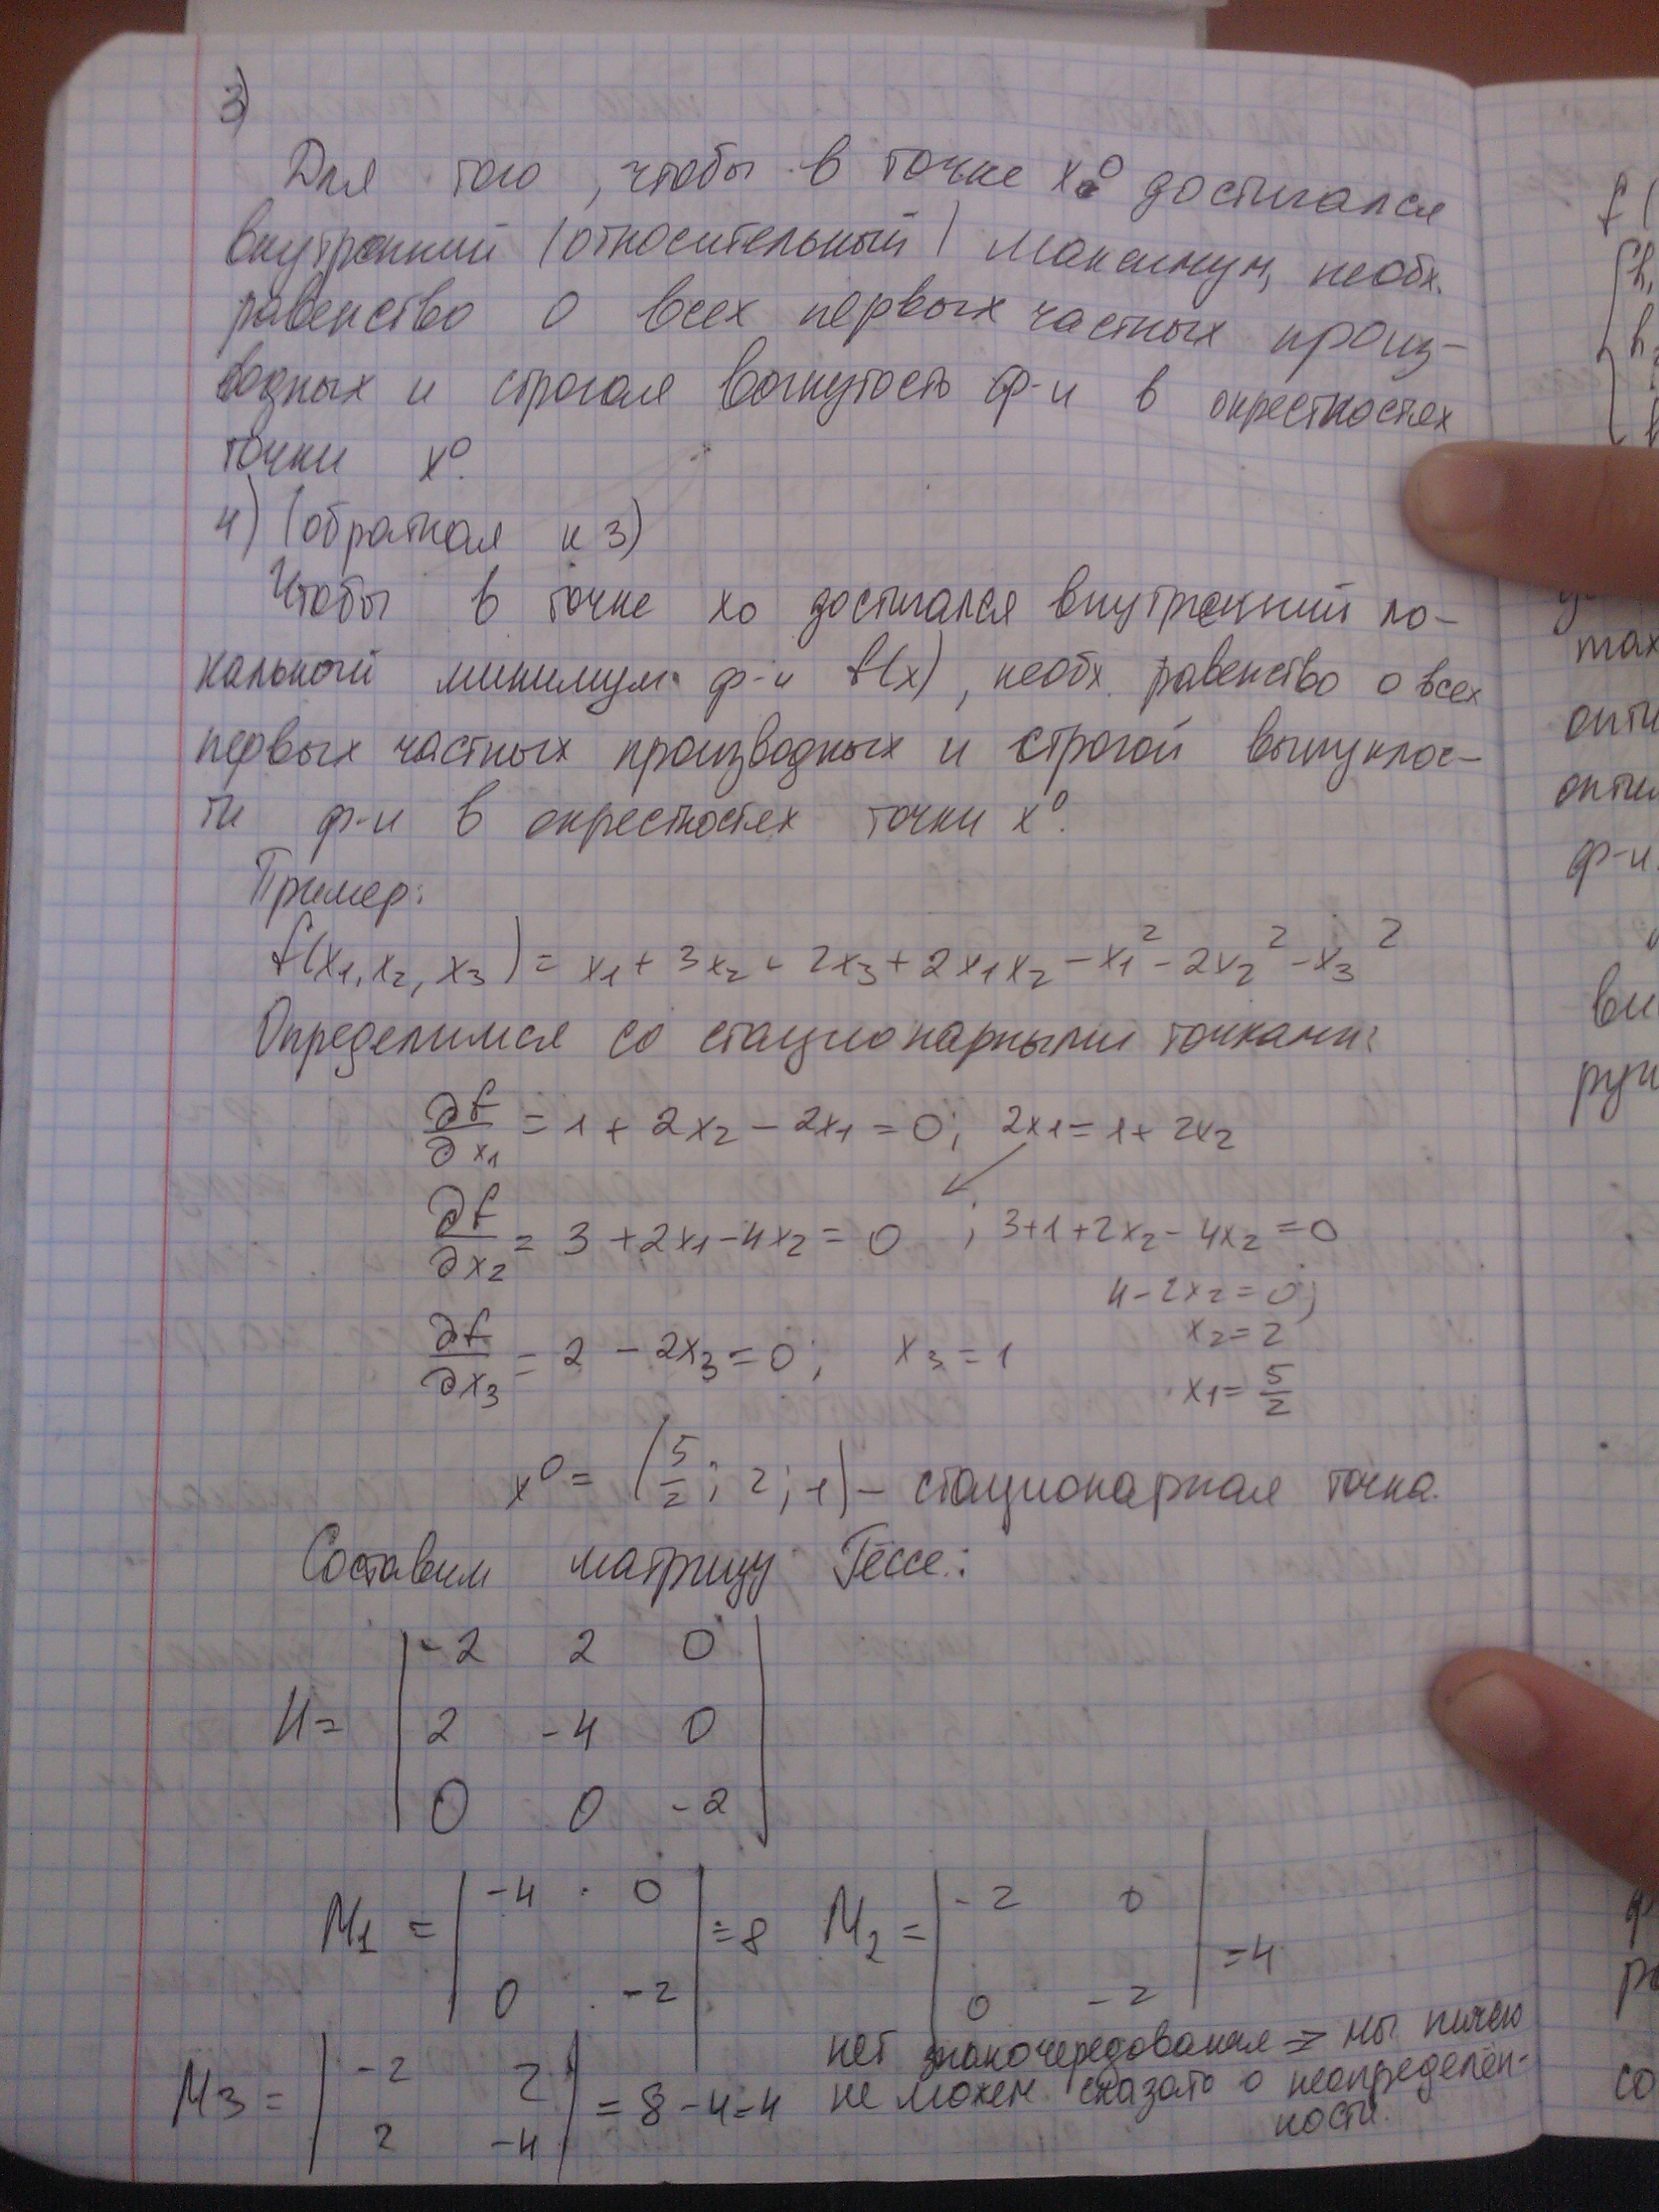 3)
Для того, чтобы в точке x⁰ достигался
внутренний (относительный) максимум, необх.
равенство 0 всех первых частных произ-
водных и строгая вогнутость ф-и в окрестностях
точки x⁰.
4) (обратная к 3)
Чтобы в точке x0 достигался внутренний ло-
кальный минимум ф-и f(x), необх. равенство 0 всех
первых частных производных и строгой выпуклос-
ти ф-и в окрестностях точки x⁰.
Пример:
f(x₁, x₂, x₃) = x₁ + 3x₂ + 2x₃ + 2x₁x₂ - x₁² - 2x₂² - x₃²
Определимся со стационарными точками:
∂f/∂x₁ = 1 + 2x₂ - 2x₁ = 0; 2x₁ = 1 + 2x₂
∂f/∂x₂ = 3 + 2x₁ - 4x₂ = 0 ; 3+1+2x₂ - 4x₂ = 0
4 - 2x₂ = 0;
x₂ = 2
∂f/∂x₃ = 2 - 2x₃ = 0; x₃ = 1
x₁ = 5/2
x⁰ = (5/2; 2; 1) - стационарная точка.
Составим матрицу Гессе:
-2 2 0
H = 2 -4 0
0 0 -2
M₁ = | -4 0 | = 8 M₂ = | -2 0 | = 4
0 -2 0 -2
нет знакочередования => мы ничего
M₃ = | -2 2 | = 8 - 4 = 4 не можем сказать о неопределён-
2 -4 ности.
f(
h,
max
опти
опти
ф-и